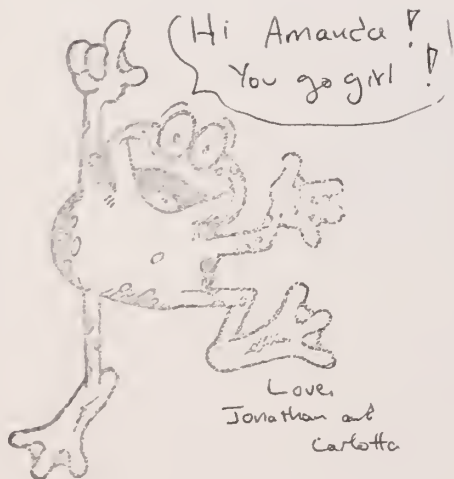 Hi Amanda!
You go girl!!
Love,
Jonathan and
Carlotta